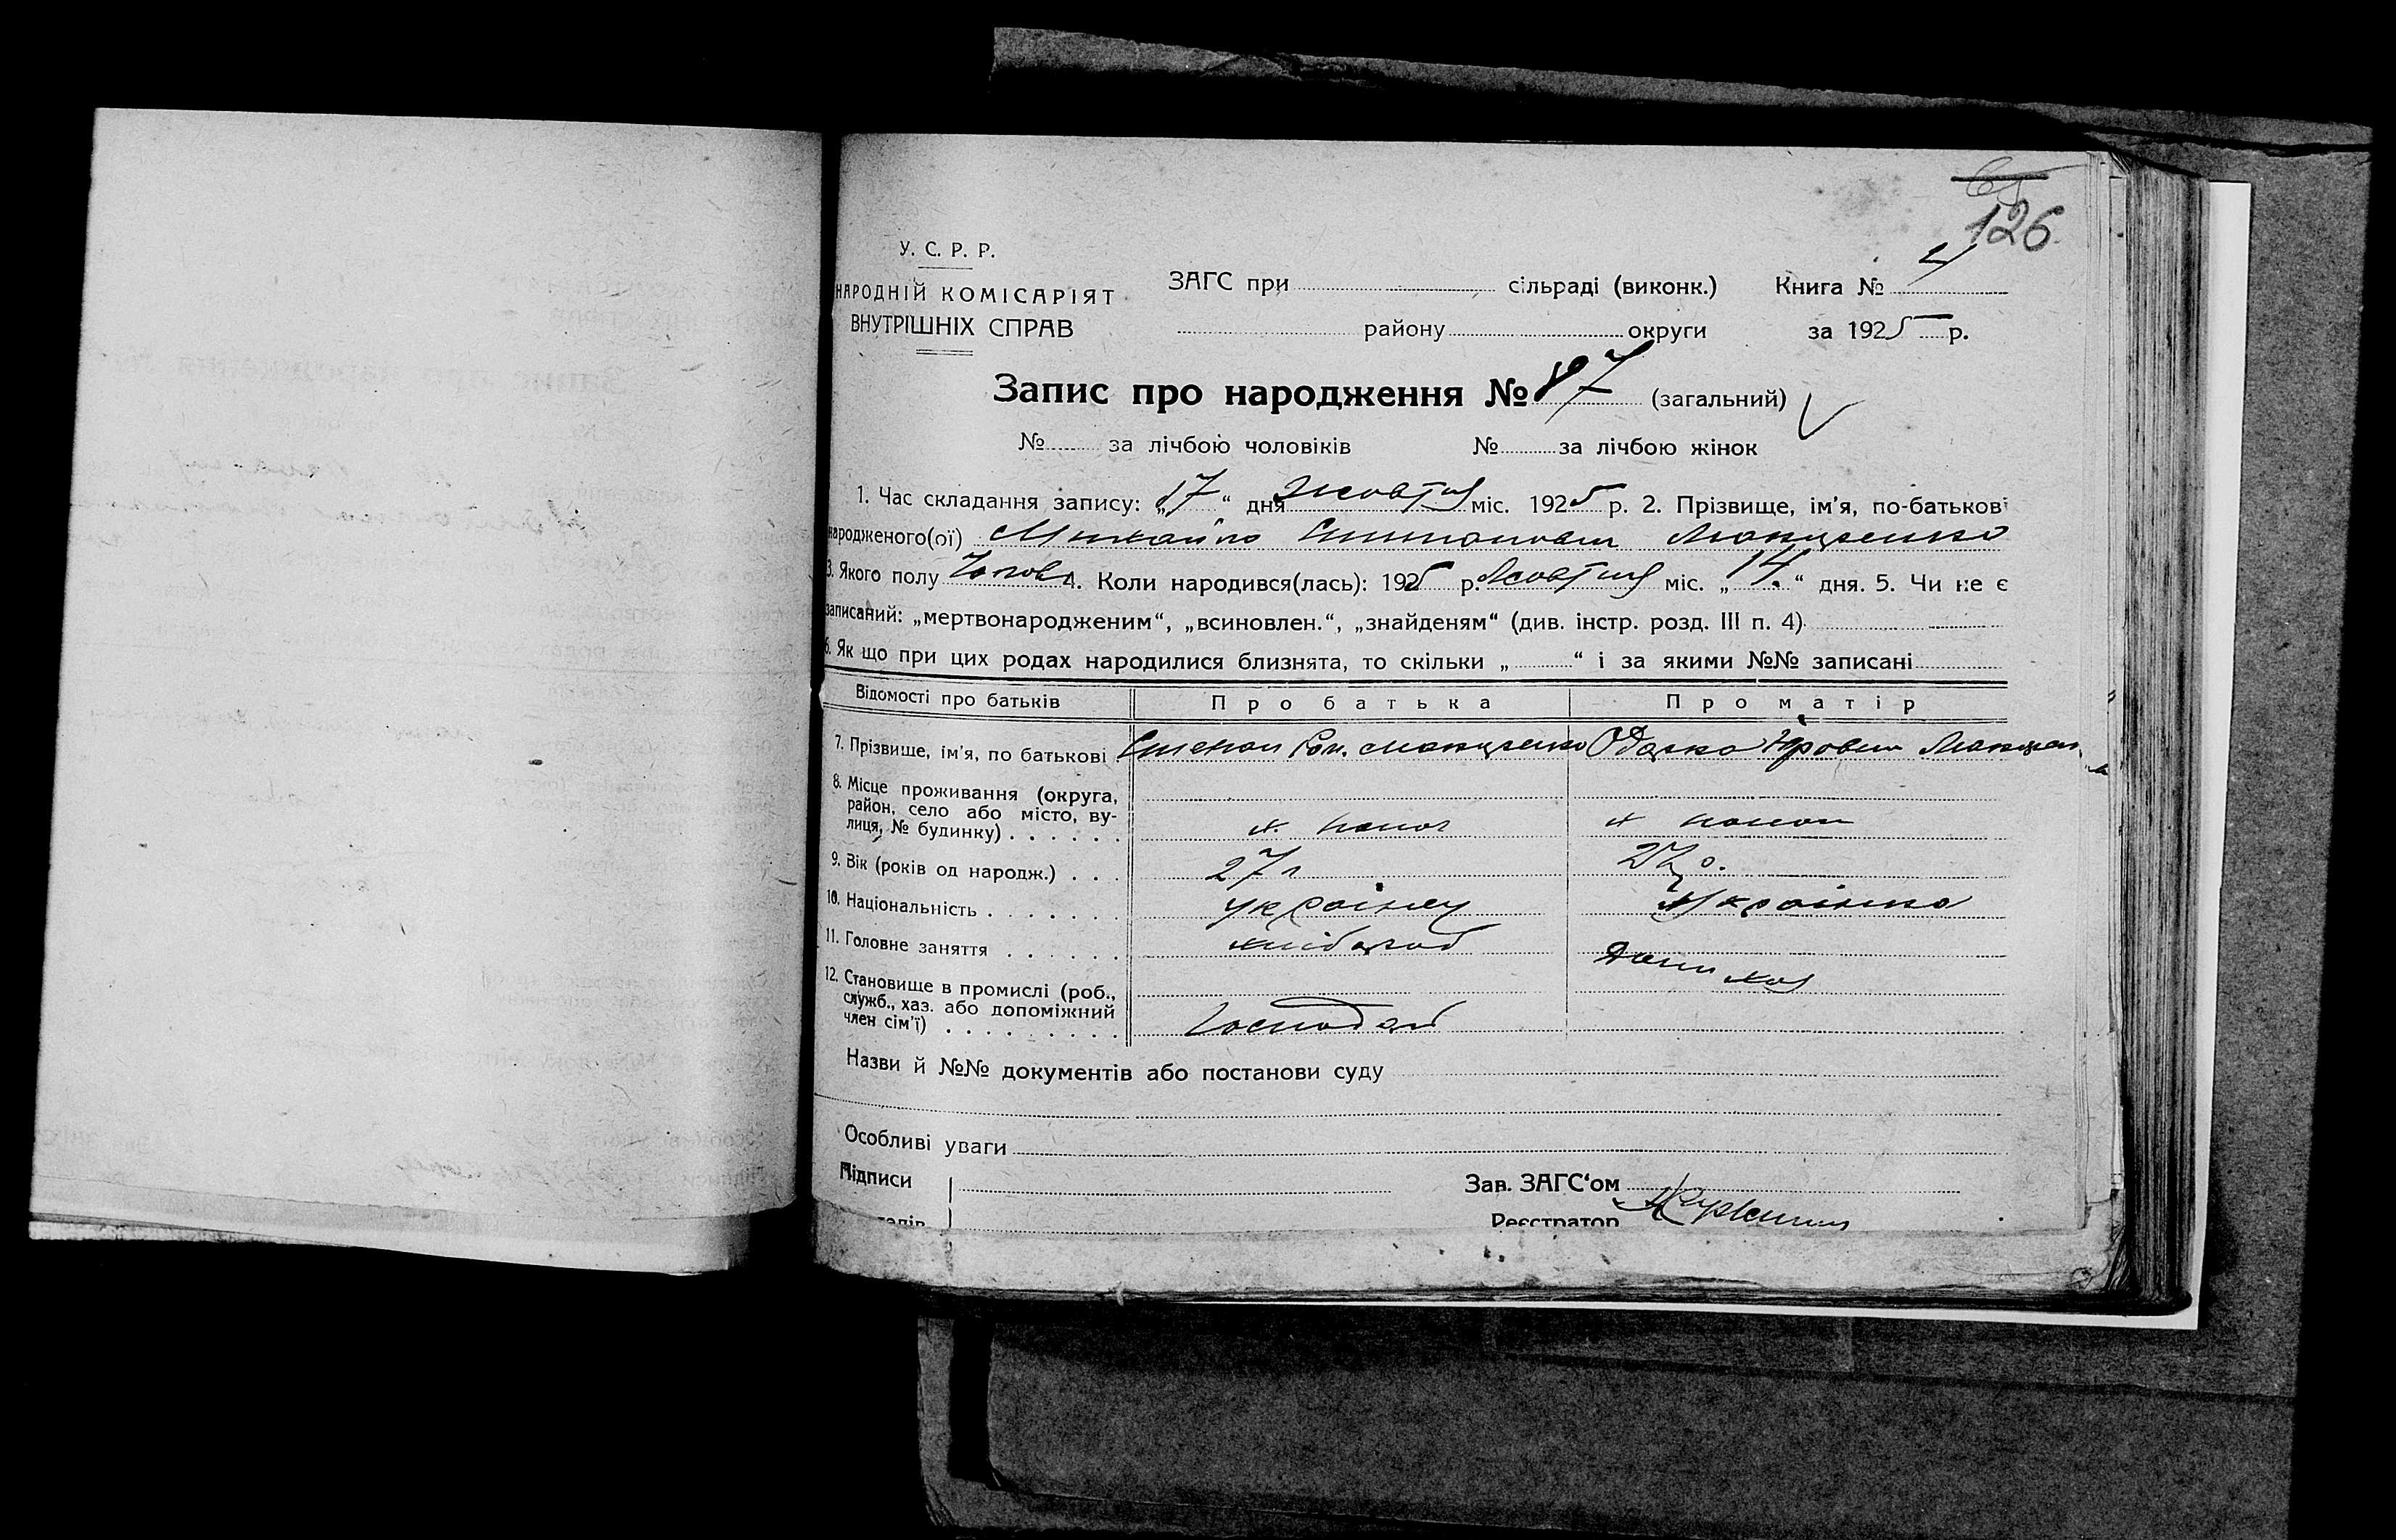 126
У. С. Р. Р.
НАРОДНІЙ КОМІСАРІЯТ
ВНУТРІШНІХ СПРАВ
ЗАГС при сільраді (виконк.) Книга №
району округи за 1925 р.
Запис про народження № 87 (загальний)
№ за лічбою чоловіків № за лічбою жінок
1. Час складання запису: „17“ дня жовтня міс. 1925 р. 2. Прізвище, ім'я, по-батькові
народженого(ої) Михайло
3. Якого полу Чолов 4. Коли народився(лась): 1925 р. жовтня міс. „14.“ дня. 5. Чи не є
записаний: „мертвонародженим“, „всиновлен.“, „знайденям“ (див. інстр. розд. III п. 4)
6. Як що при цих родах народилися близнята, то скільки „ “ і за якими №№ записані
Відомості про батьків Про батька Про матір
7. Прізвище, ім'я, по батькові Степан Ром. Одарка
8. Місце проживання (округа,
район, село або місто, ву-
лиця, № будинку)
9. Вік (років од народж.) 27
10. Національність українец українка
11. Головне заняття хлібороб
12. Становище в промислі (роб.,
служб., хаз. або допоміжний
член сім'ї) Господар
Назви й №№ документів або постанови суду
Особливі уваги
Підписи Зав. ЗАГС'ом
Реєстратор